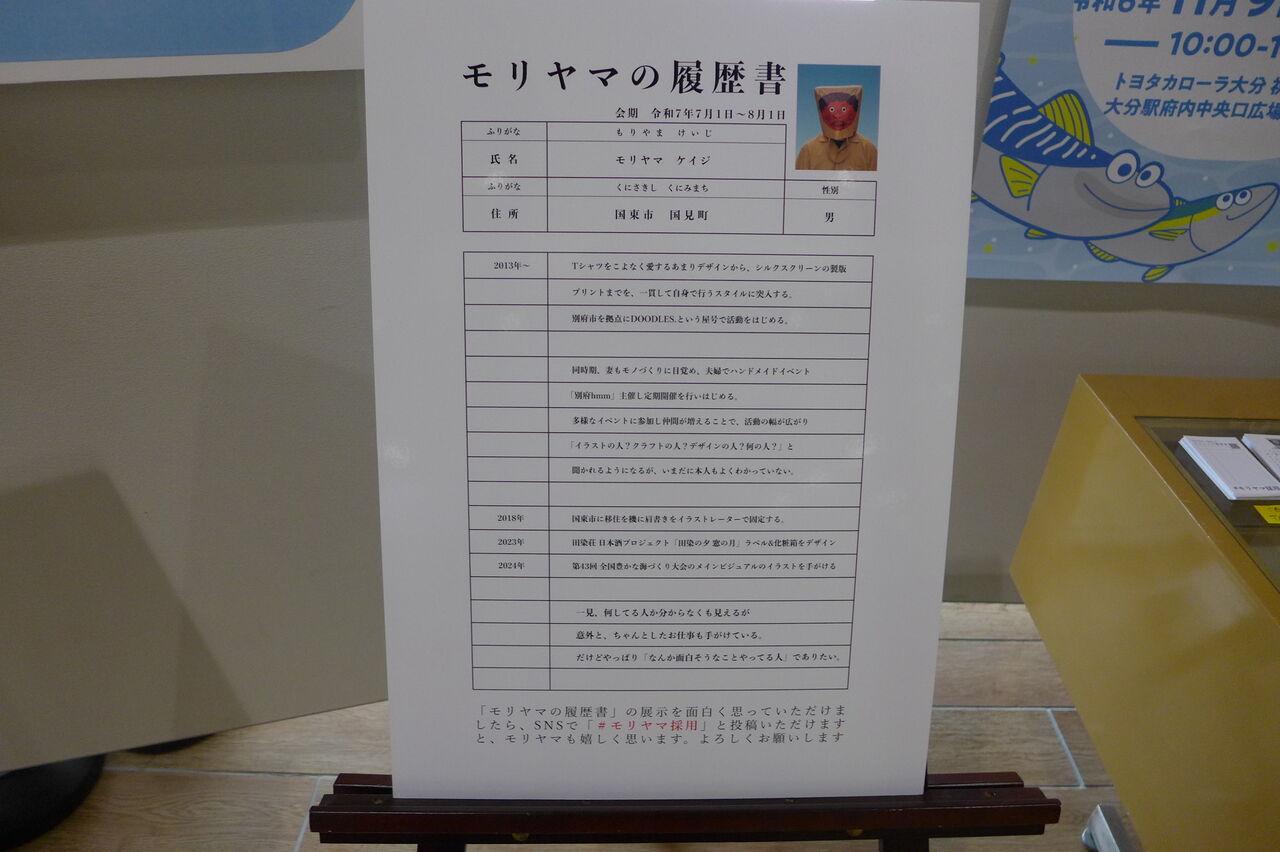 モリヤマの履歴書
会期 令和7年7月1日～8月1日
ふりがな もりやま けいじ
氏名 モリヤマ ケイジ
ふりがな くにさきし くにみまち 性別
住所 国東市 国見町 男
2013年～ Tシャツをこよなく愛するあまりデザインから、シルクスクリーンの製版
プリントまでを、一貫して自身で行うスタイルに突入する。
別府市を拠点にDOODLES.という屋号で活動をはじめる。
同時期、妻もモノづくりに目覚め、夫婦でハンドメイドイベント
「別府hmm」主催し定期開催を行いはじめる。
多様なイベントに参加し仲間が増えることで、活動の幅が広がり
「イラストの人？クラフトの人？デザインの人？何の人？」と
聞かれるようになるが、いまだに本人もよくわかっていない。
2018年 国東市に移住を機に肩書きをイラストレーターで固定する。
2023年 田染荘 日本酒プロジェクト「田染の夕 窓の月」ラベル&化粧箱をデザイン
2024年 第43回 全国豊かな海づくり大会のメインビジュアルのイラストを手がける
一見、何してる人か分からなくも見えるが
意外と、ちゃんとしたお仕事も手がけている。
だけどやっぱり「なんか面白そうなことやってる人」でありたい。
「モリヤマの履歴書」の展示を面白く思っていただけま
したら、SNSで「#モリヤマ採用」と投稿いただけます
と、モリヤマも嬉しく思います。よろしくお願いします
令和6年 11月9
10:00-1
トヨタカローラ大分 祝
大分駅府内中央口広場
#モリヤマ採用